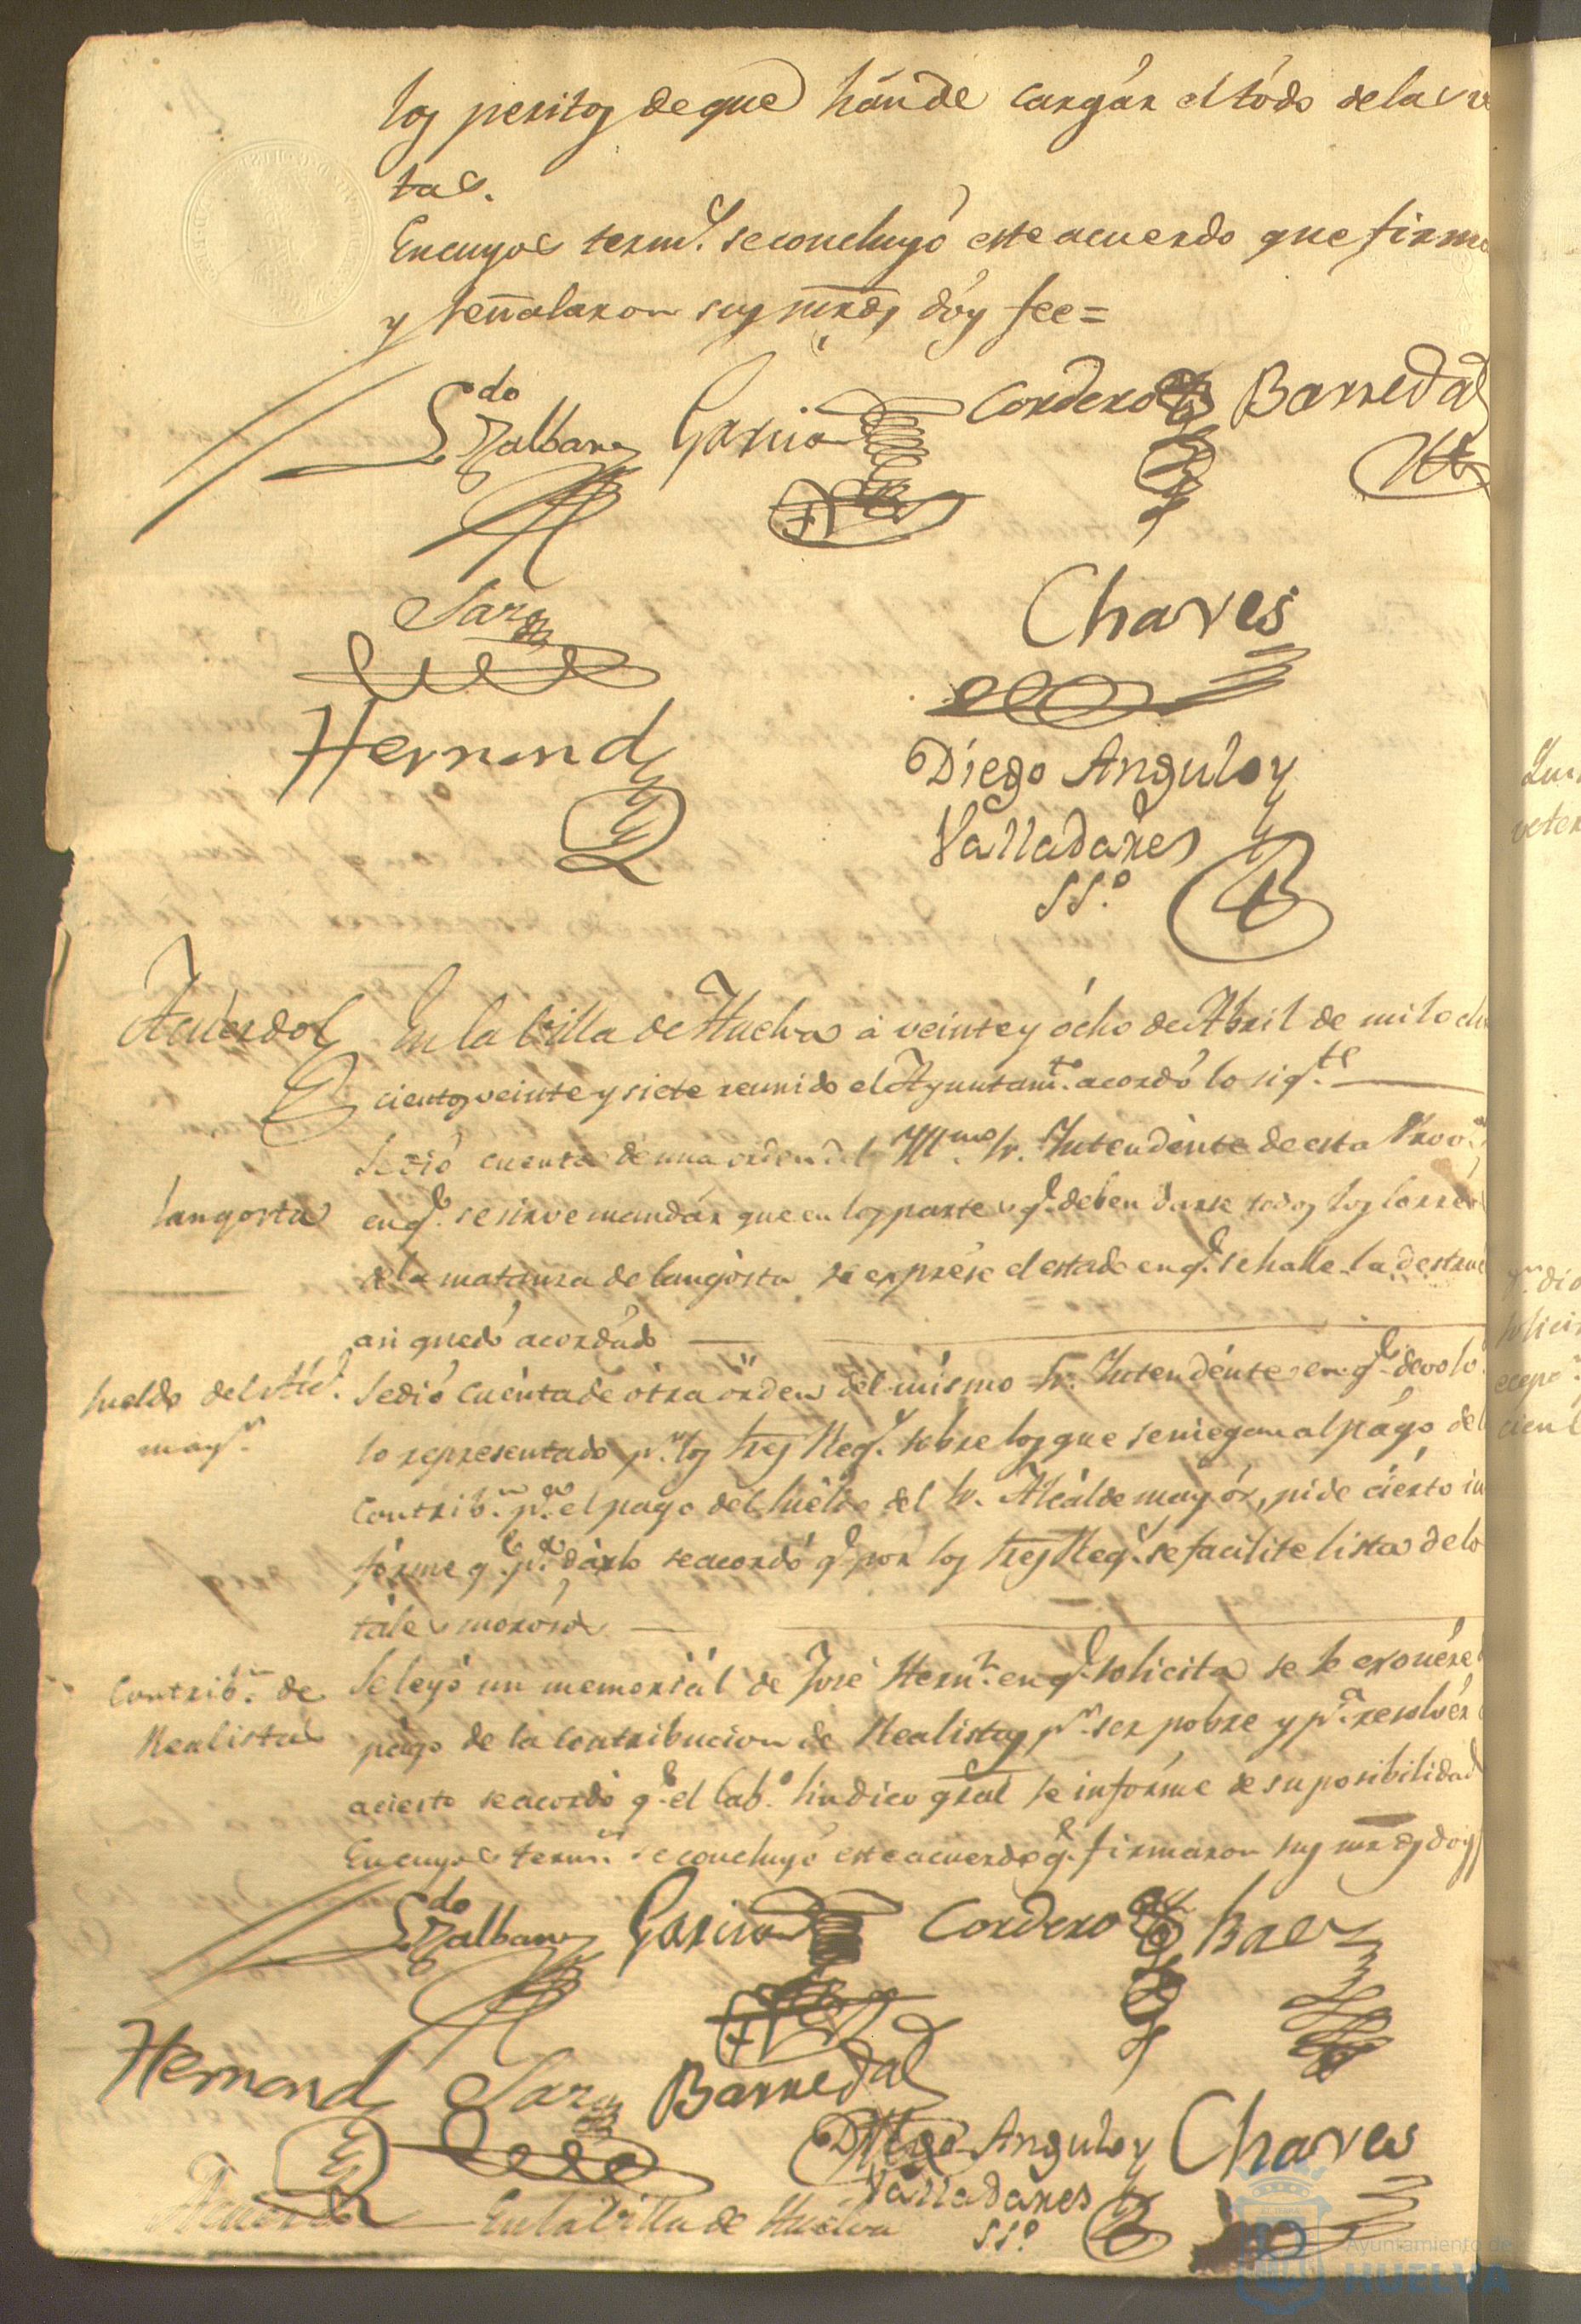 los peritos de que hánde cargár el tódo de las
tas.
En cuyos term.s se concluyó este acuerdo que firma
y señalaron sus mrds, dóy fee=
L.do Galbany Garcia Cordero Barreda
Jara
Chaves
Hernand
Diego Angulo y
Valladares
SSº
Acuerdo
En la Villa de Huelva á veinte y ócho de Abril de mil ocho
cientos veinte y siete reunido el Ayuntam.to acordó lo sig.te
Se dió cuenta de una orden del Yll.mo Sr. Yntendénte de esta Prov.a
langosta
en q.e se sirve mandár que en los partes q.e deben darse todos los correos
de la matanza de langósta se exprése el estado en q.e se halle la destruc
asi quedó acordádo
Sueldo del Al.e
may.r
Se dió cuénta de ótra orden del mismo Sr. Yntendénte en q.e devolv
lo representado p.r los tres Reg.s sobre los que se niegan al págo del
Contrib.n p.a el pago del Suéldo del Sr. Alcálde mayór, pide ciérto in
fórme q.e p.a dárlo se acordó q.e por los tres Reg.s se facilite lista de lo
tales morósos
Contrib.n de
Realistas
Se leyó un memoriál de José Hern.z en q.e solicita se le exonére
págo de la Contribucion de Realistas p.r ser pobre y p.a resolvér
acierto se acordó q.e el Cab.o Sindico gral se infórme de su posibilidad
En cuyos term.s se concluyó este acuerdo q.e firmaron sus mrds doy
L.do Galbany Garcia Cordero Baez
Hernand Jara Barreda
Diego Angulo y
Valladares
SSº
Chaves
Acuerdo En la Villa de Huelva
Ayuntamiento de
HUELVA